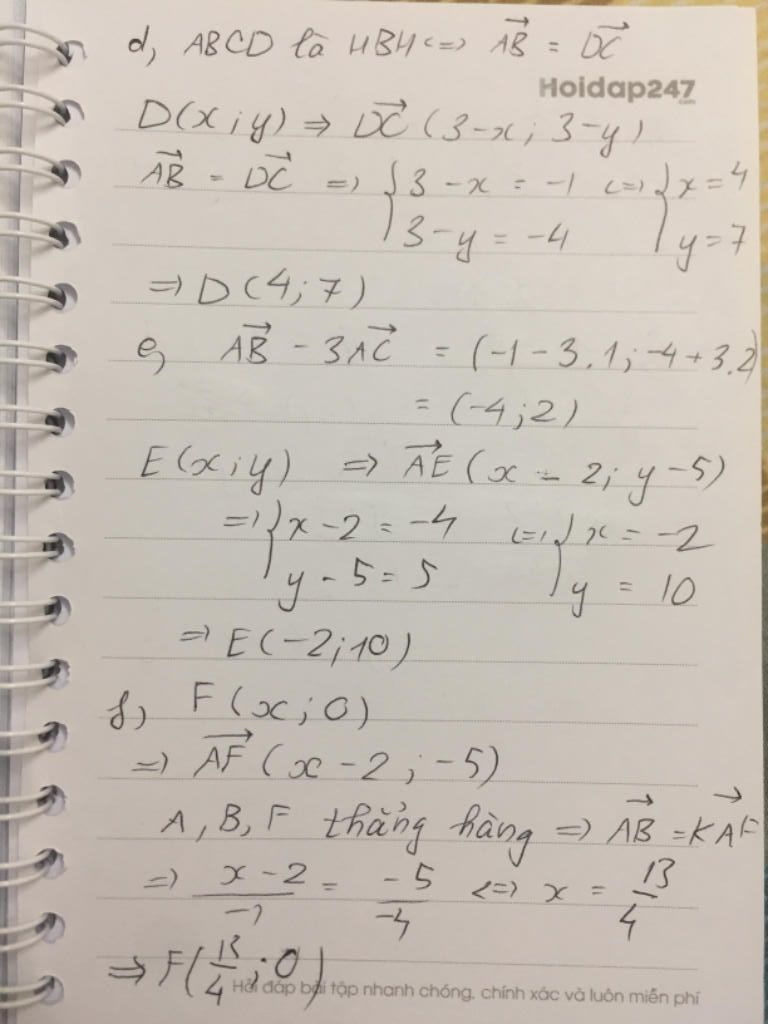 d, ABCD là HBH <=> \overrightarrow{AB} = \overrightarrow{DC}
Hoidap247
.com
D(x;y) => \overrightarrow{DC} (3-x; 3-y)
\overrightarrow{AB} = \overrightarrow{DC} => { 3 - x = -1 <=> { x = 4
3 - y = -4 y = 7
=> D(4;7)
e, \overrightarrow{AB} - 3\overrightarrow{AC} = (-1 - 3.1; -4 + 3.2)
= (-4; 2)
E(x;y) => \overrightarrow{AE} (x - 2; y - 5)
=> { x - 2 = -4 <=> { x = -2
y - 5 = 5 y = 10
=> E(-2; 10)
f, F(x; 0)
=> \overrightarrow{AF} (x - 2; -5)
A, B, F thẳng hàng => \overrightarrow{AB} = K\overrightarrow{AF}
=> \frac{x-2}{-1} = \frac{-5}{-4} <=> x = \frac{13}{4}
=> F(\frac{13}{4}; 0)
Hỏi đáp bài tập nhanh chóng, chính xác và luôn miễn phí